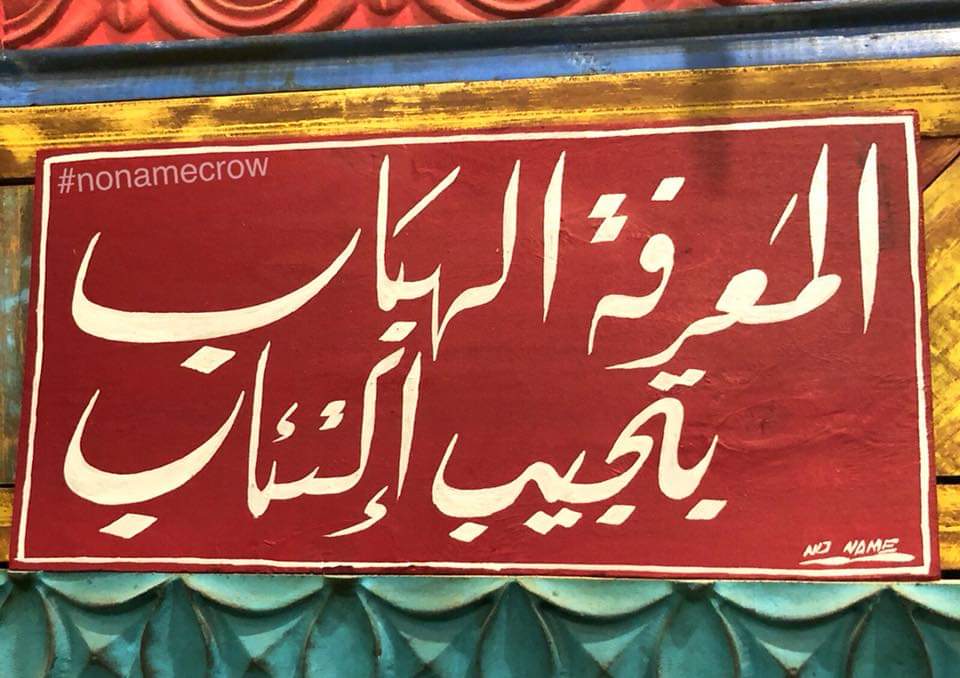 #nonamecrow
المعرفة الهباب
بتجيب إكتئاب
NO NAME